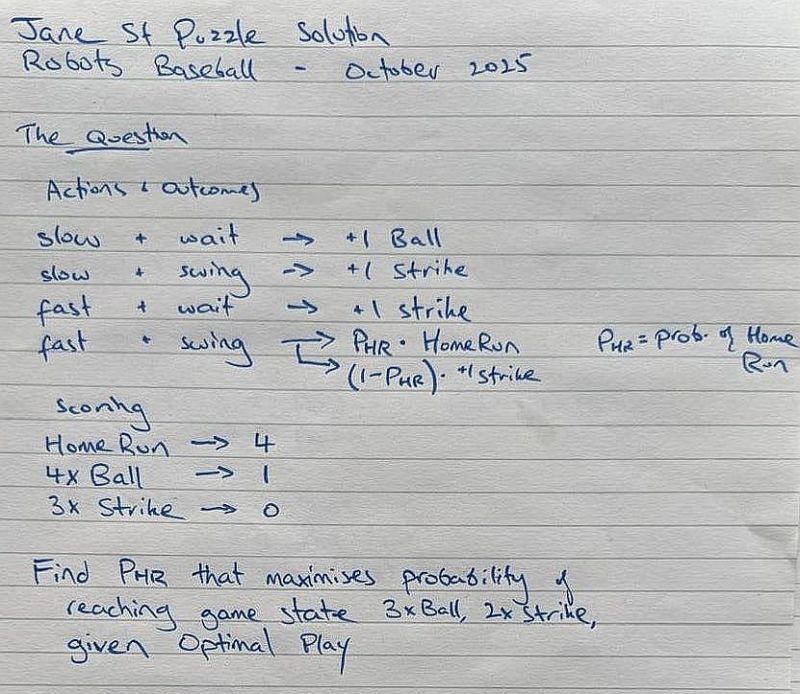 Jane St Puzzle Solution
Robots Baseball - October 2025
The Question
Actions & Outcomes
slow + wait → +1 Ball
slow + swing → +1 Strike
fast + wait → +1 strike
fast + swing → PHR · HomeRun PHR = prob. of Home Run
↳ (1-PHR) · +1 strike
Scoring
Home Run → 4
4x Ball → 1
3x Strike → 0
Find PHR that maximises probability of
reaching game state 3xBall, 2x Strike,
given Optimal Play